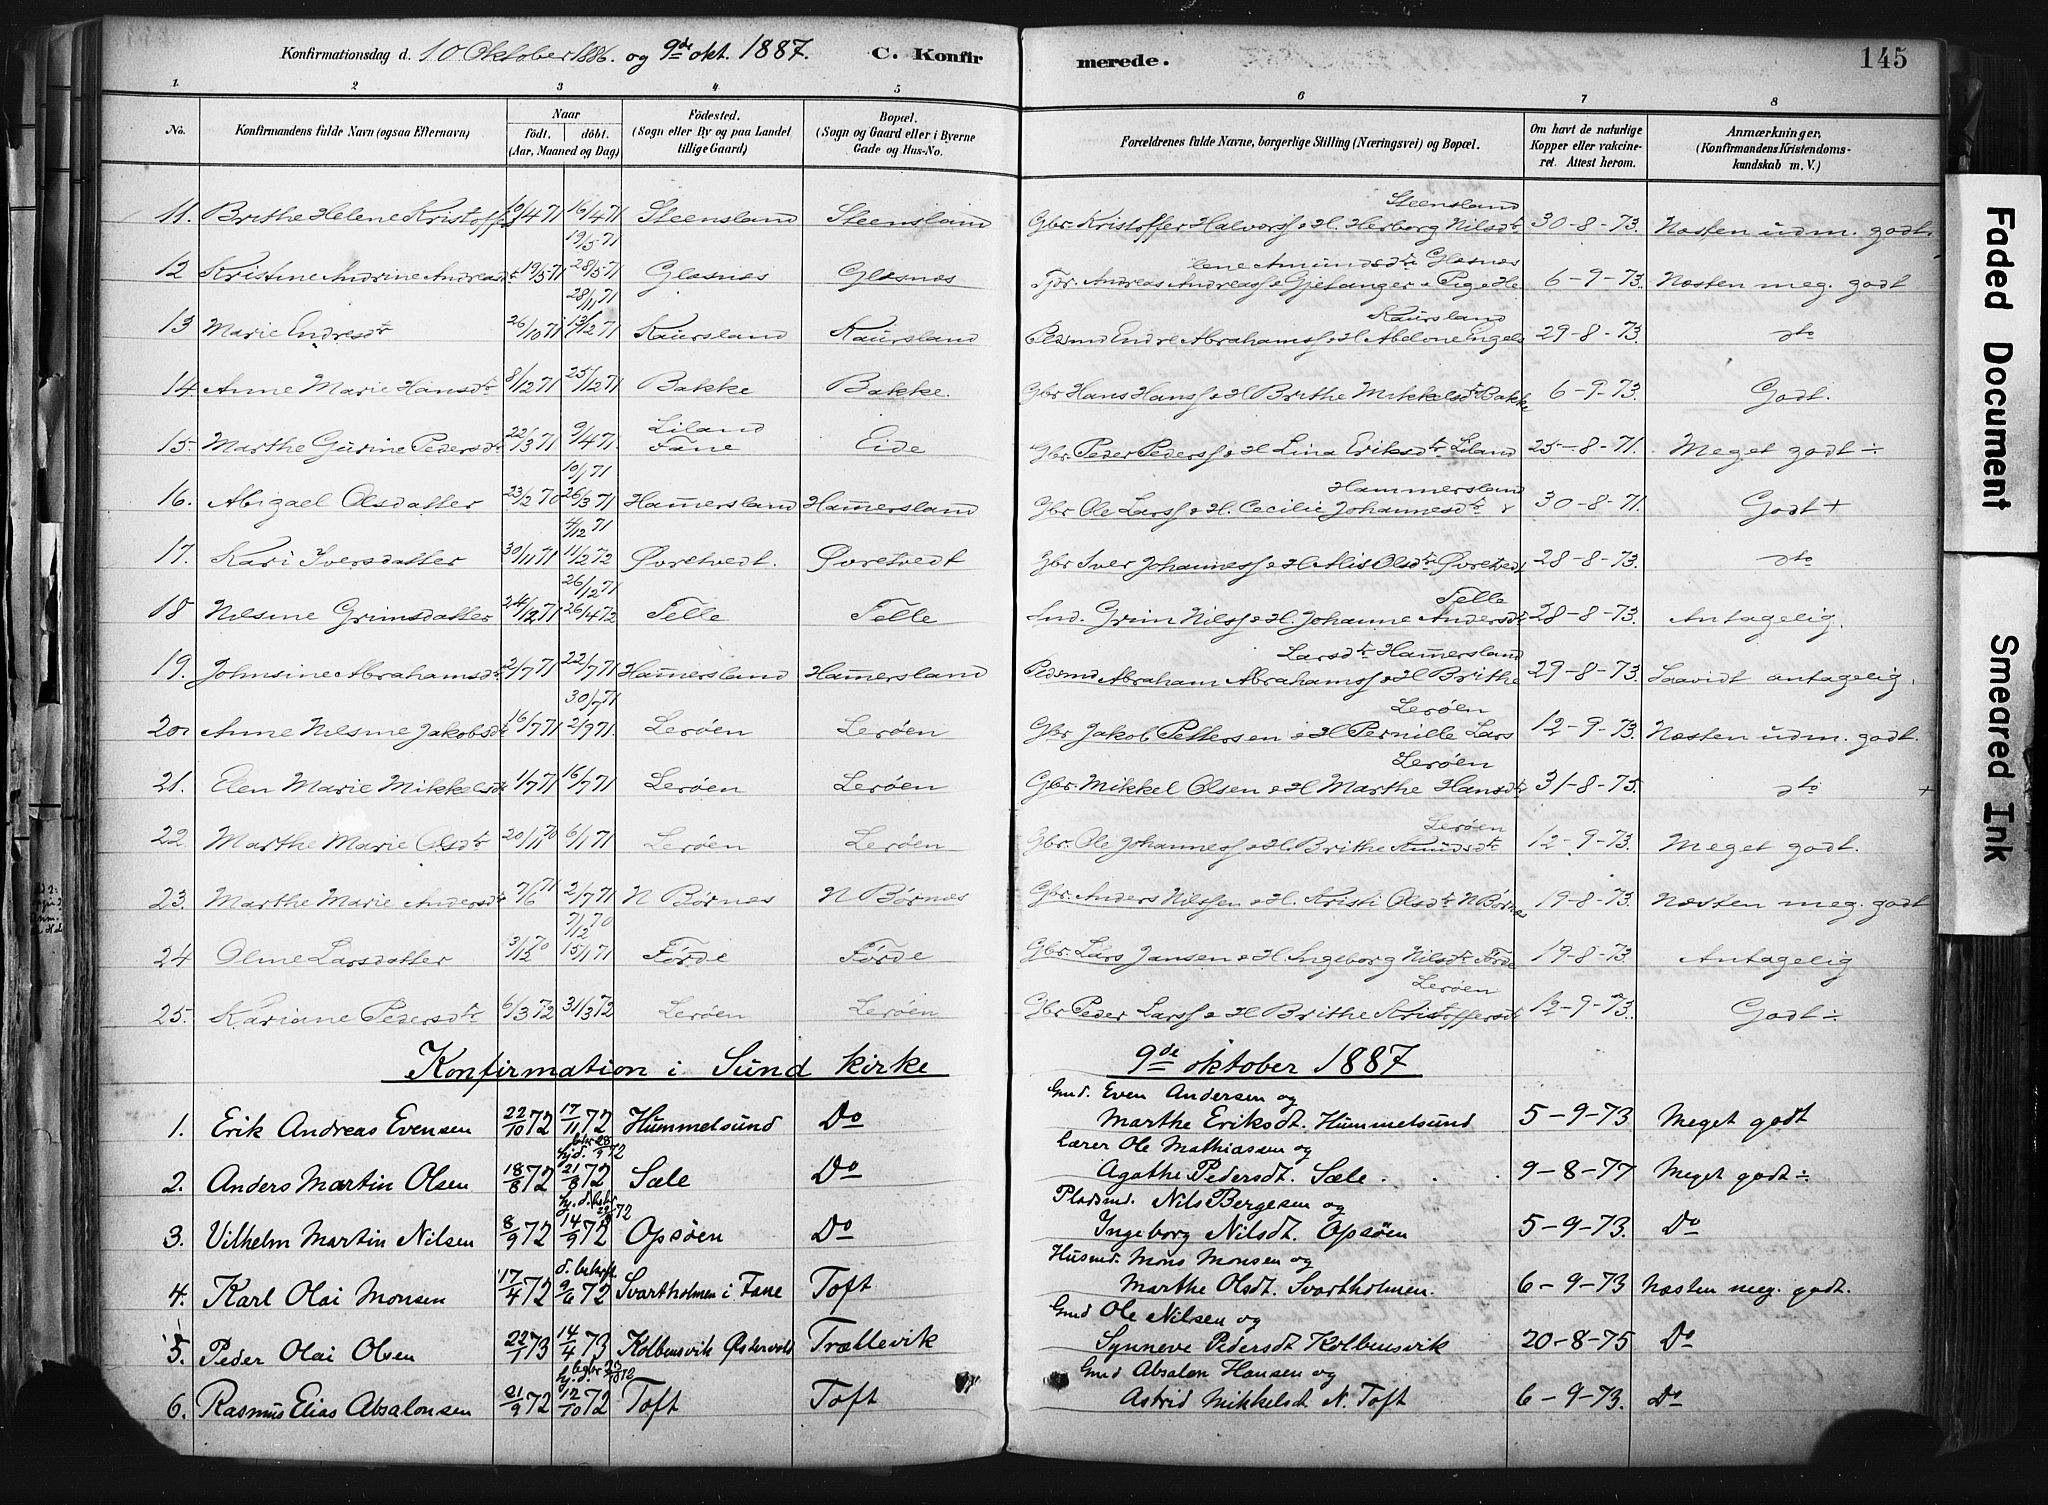 Konfirmationsdag d. 10 Oktober 1886. og 9de okt. 1887. C. Konfirmerede. 145
1. 2 3 4 5 6 7 8
No. Konfirmandens fulde Navn (ogsaa Efternavn) Naar födt. döbt. (Aar, Maaned og Dag) Födested. (Sogn eller By og paa Landet tillige Gaard) Bopæl. (Sogn og Gaard eller i Byerne Gade og Hus-No. Forældrenes fulde Navne, borgerlige Stilling (Næringsvei) og Bopæl. Om havt de naturlige Kopper eller vakcineret. Attest herom. Anmærkninger. (Konfirmandens Kristendomskundskab m. V.)
11. Brithe Helene Kristoff 10/4 71 16/4 71 Steensland Steensland Gbr. Kristoffer Halvorss & H. Herborg Nilsdtr Steensland 30-8-73. Næsten udm. godt.
12 Kristine Andrine Andreasdtr 19/5 71 19/5 71 28/5 71 Glesnæs Glesnæs Andreas Andreass Gjetanger & Pige Helene Amundsdtr Glesnæs 6-9-73. Næsten meg. godt
13 Marie Endresdtr 26/10 71 28/11 71 13/12 71 Kaursland Kaursland Pladsmd Endre Abrahamss & H Abelone Engels Kaursland 29-8-73. dto
14. Anne Marie Hansdtr 8/12 71 25/12 71 Bakke Bakke. Gbr Hans Hanss & H Brithe Mikkelsdtr Bakke 6-9-73. Godt.
15. Marthe Gurine Pedersdtr 22/3 71 9/4 71. Liland Fane Eide Gbr. Peder Pederss & H Lina Eriksdtr Liland 25-8-71. Meget godt ÷
16. Abigael Olsdatter 23/2 70 10/1 71 26/3 71 Hamersland Hamersland Gbr Ole Larss & H. Cecilie Johannesdtr Hammersland 30-8-71. Godt +
17. Kari Iversdatter 30/11 71 4/12 71 11/2 72 Øvretvedt. Øvretvedt Gbr Iver Johanness & H Alis Olsdtr Øvretvedt 28-8-73. dto
18 Nilsine Grimsdatter 24/12 71 26/12 71 26/4 72 Telle Telle Ind. Grim Nilss & H. Johanne Andersdtr Telle 28-8-73. Antagelig.
19. Johnsine Abrahamsdtr 2/7 71 22/7 71 Hamersland Hamersland Pladsmd Abraham Abrahamss & H Brithe Larsdtr Hamersland 29-8-73. Saavidt antagelig.
20. Anne Nilsine Jakobsdtr 16/7 71 30/7 71 2/9 71. Lerøen Lerøen Gbr Jakob Pettersen & H Pernille Lars Lerøen 12-9-73. Næsten udm. godt.
21. Elen Marie Mikkelsdtr 1/7 71 16/7 71 Lerøen Lerøen Gbr. Mikkel Olsen & H Marthe Hansdtr Lerøen 31-8-75. dto +
22 Marthe Marie Olsdtr 20/11 70 6/1 71 Lerøen Lerøen Gbr. Ole Johanness & H. Brithe Knudsdtr Lerøen 12-9-73. Meget godt.
23. Marthe Marie Andersdtr 7/6 71 2/7 71 N Børnes N Børnes Gbr. Anders Nilssen & H. Kristi Olsdtr N Børnes 19-8-73. Næsten meg. godt
24 Oline Larsdatter 3/12 70 7/12 70 15/1 71 Førde Førde Gbr. Lars Jansen & H. Ingeborg Nilsdtr Førde 19-8-73. Antagelig
25. Kariane Pedersdtr 6/3 72 31/3 72 Lerøen Lerøen Gbr Peder Larss & H Brithe Kristoffersdtr Lerøen 12-9-73. Godt ÷
Konfirmation i Sund kirke 9de oktober 1887
1. Erik Andreas Evensen 22/10 72 17/11 72 Hummelsund Do Gmd. Even Andersen og Marthe Eriksdt. Hummelsund 5-9-73 Meget godt
2. Anders Martin Olsen 18/8 72 21/8 72 Sæle Do Lærer Ole Mathiassen og Agathe Pedersdt. Sæle 9-8-77 Meget godt ÷
3. Vilhelm Martin Nilsen 8/9 72 14/9 72 Opsøen Do Pladsmd. Nils Bergesen og Ingeborg Nilsdt. Opsøen 5-9-73. Do
4. Karl Olai Monsen 17/4 72 9/6 72 Svartholmen i Fane Toft Husmd. Mons Monsen og Marthe Olsdt. Svartholmen. 6-9-73 Næsten meg. godt.
5. Peder Olai Olsen 22/1 73 14/4 73 Kolbensvik Østervold Trællevik Gmd Ole Nilsen og Synneve Pedersdt Kolbensvik 20-8-75 Do
6. Rasmus Elias Absalonsen 21/9 72 12/10 72 Toft Toft Gmd Absalon Hansen og Astrid Mikkelsdt N. Toft 6-9-73. Do
Faded Document
Smeared Ink